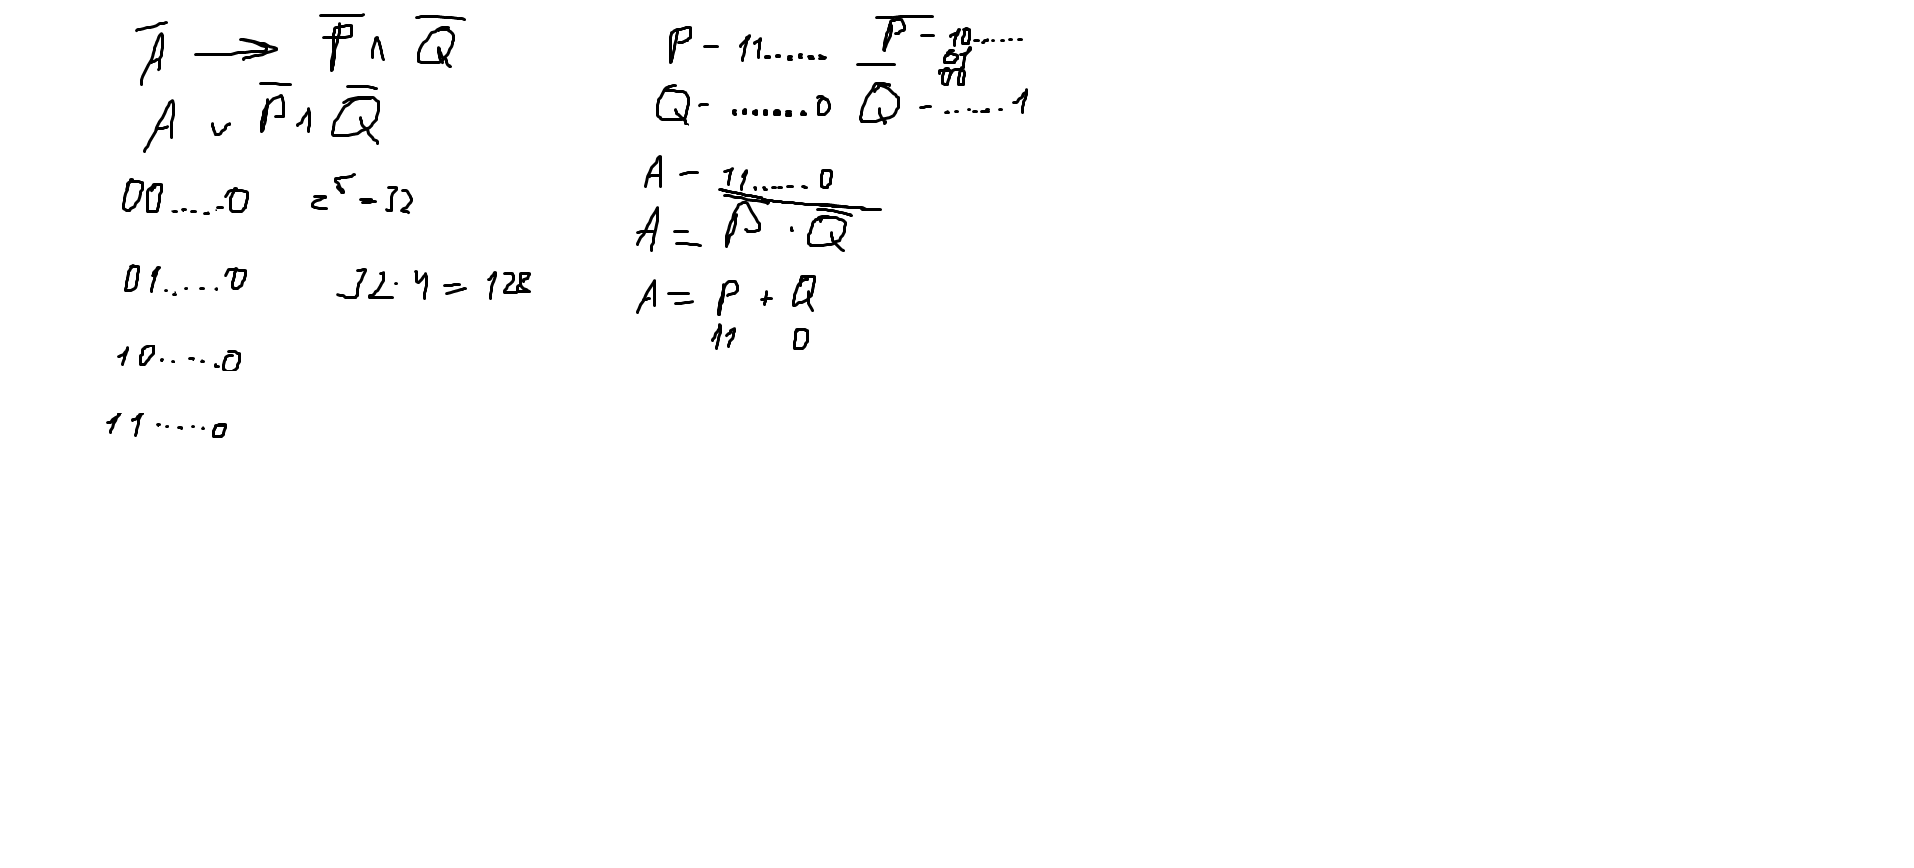 A̅ → P̅ ∧ Q̅
A ∨ P̅ ∧ Q̅
00.....0 2⁵ = 32
01.....0 32·4 = 128
10.....0
11.....0
P - 11...... P̅ - 10......
01
00
Q - .......0 Q̅ - ......1
A - 11......0
A = P̅ · Q̅
A = P + Q
11 0